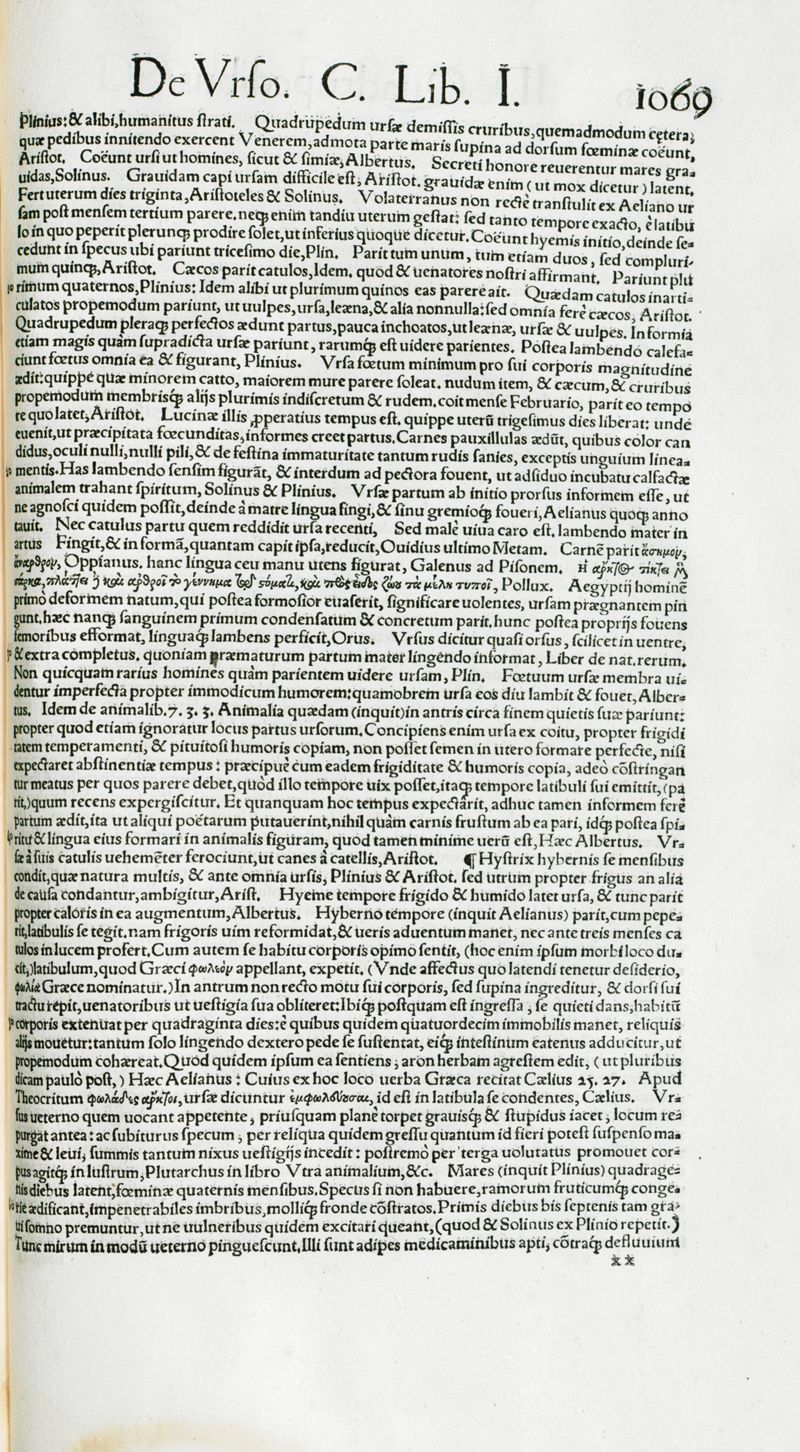 De Vrſo. C. Lib. I. 1069
Plinius: & alibi, humanitus ſtrati. Quadrupedum urſæ demiſſis cruribus, quemadmodum cętera,
quæ pedibus innitendo exercent Venerem, admota parte maris ſupina ad dorſum fœminæ coëunt,
Ariſtot. Coëunt urſi ut homines, ſicut & ſimiæ, Albertus. Secreti honore reuerentur mares gra⸗
uidas, Solinus. Grauidam capi urſam difficile eſt, Ariſtot. grauidæ enim (ut mox dicetur) latent.
Fert uterum dies triginta, Ariſtoteles & Solinus. Volaterranus non recte tranſtulit ex Aeliano ur
ſam poſt menſem tertium parere. neq̃ enim tandiu uterum geſtat: ſed tanto tempore exacto, è latibu
lo in quo peperit plerunq̃ prodire ſolet, ut inferius quoque dicetur. Coëunt hyemis initio, deinde ſe⸗
cedunt in ſpecus ubi pariunt triceſimo die, Plin. Parit tum unum, tum etiam duos, ſed compluri⸗
mum quinq̃, Ariſtot. Cæcos parit catulos, Idem. quod & uenatores noſtri affirmant. Pariunt plu
10 rimum quaternos, Plinius: Idem alibi ut plurimum quinos eas parere ait. Quædam catulos inarti⸗
culatos propemodum pariunt, ut uulpes, urſa, leæna, & alia nonnulla: ſed omnia ferè cæcos, Ariſtot.
Quadrupedum pleraq̃ perfectos ædunt partus, pauca inchoatos, ut leænæ, urſæ & uulpes. Informia
etiam magis quàm ſupradicta urſæ pariunt, rarumq̃ eſt uidere parientes. Poſtea lambendo calefa⸗
ciunt fœtus omnia ea & figurant, Plinius. Vrſa fœtum minimum pro ſui corporis magnitudine
ædit: quippe quæ minorem catto, maiorem mure parere ſoleat. nudum item, & cæcum, & cruribus
propemodum membrisq̃ alijs plurimis indiſcretum & rudem. coit menſe Februario, parit eo tempo
re quo latet, Ariſtot. Lucinæ illis properatius tempus eſt. quippe uterũ trigeſimus dies liberat: unde
euenit, ut præcipitata fœcunditas, informes creet partus. Carnes pauxillulas ædũt, quibus color can
didus, oculi nulli, nulli pili, & de feſtina immaturitate tantum rudis ſanies, exceptis unguium linea⸗
mentis. Has lambendo ſenſim figurãt, & interdum ad pectora fouent, ut adſiduo incubatu calfactæ
animalem trahant ſpiritum, Solinus & Plinius. Vrſæ partum ab initio prorſus informem eſſe, ut
ne agnoſci quidem poſſit, deinde à matre lingua fingi, & ſinu gremioq̃ foueri, Aelianus quoq̃ anno
tauit. Nec catulus partu quem reddidit urſa recenti, Sed malè uiua caro eſt. lambendo mater in
artus Fingit, & in formã, quantam capit ipſa, reducit, Ouidius ultimo Metam. Carnẽ parit ἄσημον,
ἄναρθρον, Oppianus. hanc lingua ceu manu utens figurat, Galenus ad Piſonem.
Pollux. Aegyptij hominẽ
primò deformem natum, qui poſtea formoſior euaſerit, ſignificare uolentes, urſam prægnantem pin
gunt. hæc nanq̃ ſanguinem primum condenſatum & concretum parit. hunc poſtea proprijs fouens
femoribus efformat, linguaq̃ lambens perficit, Orus. Vrſus dicitur quaſi orſus, ſcilicet in uentre,
& extra completus. quoniam præmaturum partum mater lingendo informat, Liber de nat. rerum.
Non quicquam rarius homines quàm parientem uidere urſam, Plin. Fœtuum urſæ membra ui⸗
dentur imperfecta propter immodicum humorem: quamobrem urſa eos diu lambit & fouet, Alber⸗
tus. Idem de animalib. 7. 3. 3. Animalia quædam (inquit) in antris circa finem quietis ſuæ pariunt:
propter quod etiam ignoratur locus partus urſorum. Concipiens enim urſa ex coitu, propter frigidi
tatem temperamenti, & pituitoſi humoris copiam, non poſſet ſemen in utero formare perfecte, niſi
expectaret abſtinentiæ tempus: præcipuè cum eadem frigiditate & humoris copia, adeò cõſtringan
tur meatus per quos parere debet, quòd illo tempore uix poſſet, itaq̃ tempore latibuli ſui emittit, (pa
rit,) quum recens expergiſcitur. Et quanquam hoc tempus expectârit, adhuc tamen informem ferè
partum ædit, ita ut aliqui poëtarum putauerint, nihil quàm carnis fruſtum ab ea pari, idq̃ poſtea ſpi⸗
ritu & lingua eius formari in animalis figuram, quod tamen minime uerũ eſt, Hæc Albertus. Vr⸗
ſæ à ſuis catulis uehemẽter ferociunt, ut canes à catellis, Ariſtot. ¶ Hyſtrix hybernis ſe menſibus
condit, quæ natura multis, & ante omnia urſis, Plinius & Ariſtot. ſed utrum propter frigus an alia
de cauſa condantur, ambigitur, Ariſt. Hyeme tempore frigido & humido latet urſa, & tunc parit
propter caloris in ea augmentum, Albertus. Hyberno tempore (inquit Aelianus) parit, cum pepe⸗
rit, latibulis ſe tegit. nam frigoris uim reformidat, & ueris aduentum manet, nec ante treis menſes ca
tulos in lucem profert. Cum autem ſe habitu corporis opimo ſentit, (hoc enim ipſum morbi loco du⸗
cit,) latibulum, quod Græci φωλεόν appellant, expetit. (Vnde affectus quo latendi tenetur deſiderio,
φωλία Græce nominatur.) In antrum non recto motu ſui corporis, ſed ſupina ingreditur, & dorſi ſui
tractu repit, uenatoribus ut ueſtigia ſua obliteret: Ibiq̃ poſtquam eſt ingreſſa, ſe quieti dans, habitũ
corporis extenuat per quadraginta dies: è quibus quidem quatuordecim immobilis manet, reliquis
alijs mouetur: tantum ſolo lingendo dextero pede ſe ſuſtentat, eiq̃ inteſtinum eatenus adducitur, ut
propemodum cohæreat. Quod quidem ipſum ea ſentiens, aron herbam agreſtem edit, (ut pluribus
dicam paulò poſt,) Hæc Aelianus: Cuius ex hoc loco uerba Græca recitat Cælius 25. 27. Apud
Theocritum φωλάδες ἄρκτοι, urſæ dicuntur ἐμφωλεύουσαι, id eſt in latibula ſe condentes, Cælius. Vr⸗
ſus ueterno quem uocant appetente, priuſquam planè torpet grauisq̃ & ſtupidus iacet, locum re⸗
purgat antea: ac ſubiturus ſpecum, per reliqua quidem greſſu quantum id fieri poteſt ſuſpenſo ma⸗
xime & leui, ſummis tantum nixus ueſtigijs incedit: poſtremò per terga uolutatus promouet cor⸗
pus agitq̃ in luſtrum, Plutarchus in libro Vtra animalium, &c. Mares (inquit Plinius) quadrage⸗
nis diebus latent, fœminæ quaternis menſibus. Specus ſi non habuere, ramorum fruticumq̃ conge⸗
rie ædificant, impenetrabiles imbribus, molliq̃ fronde cõſtratos. Primis diebus bis ſeptenis tam gra⸗
ui ſomno premuntur, ut ne uulneribus quidem excitari queant, (quod & Solinus ex Plinio repetit.)
Tunc mirum in modũ ueterno pingueſcunt. Illi ſunt adipes medicaminibus apti, cõtraq̃ defluuium
xx